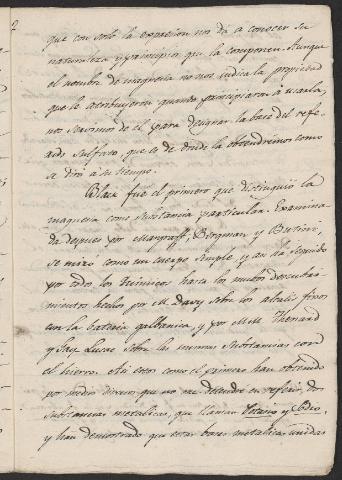 2
que con solo la expresion nos da a conocer su
naturaleza y principios que la componen. Aunque
el nombre de magnesia no nos indica la propiedad
que le atribuyeron quando principiaron à usarla,
nos servimos de el para designar la base del refe-
rido Sulfato, que es de donde la obtendremos como
se dirà a su tiempo.
Black fue el primero que distinguiò la
magnesia como substancia particular. Examina-
da despues por Margraff, Bergman y Butini,
se miró como un cuerpo simple, y asi ha seguido
por todos los Quimicos hasta los nuebos descubri-
mientos hechos por M. Davy sobre los alkalis fixos
con la bateria galbanica, y por MM. Thenard
y Gay Lusac sobre las mismas substancias con
el hierro. Asi estos como el primero han obtenido
por medios diversos que no me detendrè en referir, dos
substancias metalicas, que llaman Potasio y Sodio,
y han demostrado que estas bases metalicas unidas